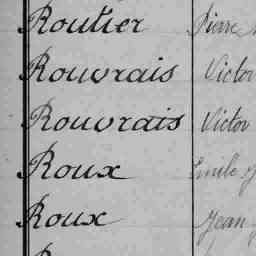 Routier Pierre
Rouvrais Victor
Rouvrais Victor
Roux Emile
Roux Jean